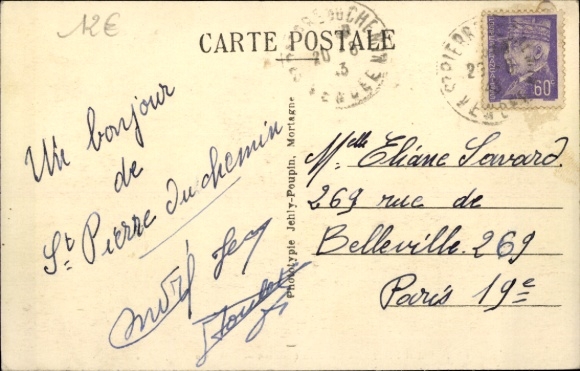 12€
CARTE POSTALE
60c
Un bonjour
de
St Pierre du chemin
André
Phototypie Jehly-Poupin, Mortagne
Melle Eliane Savard
269 rue de
Belleville 269
Paris 19e